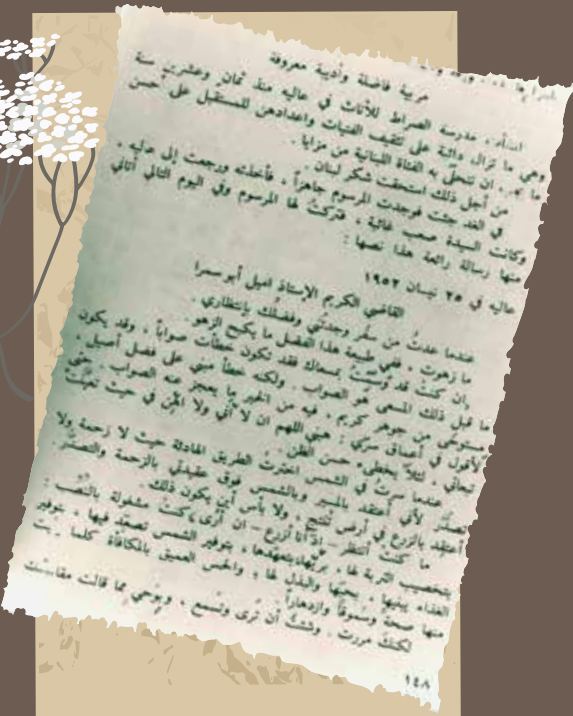 مربية فاضلة وأديبة معروفة
انشأت مدرسة الصراط للأناث في عاليه منذ ثمان وعشرين سنة
وهي ما تزال دائبة على تثقيف الفتيات واعدادهن للمستقبل على احسن
ما يجب ان تتحلى به الفتاة اللبنانية من مزايا .
من أجل ذلك استحقت شكر لبنان .
في الغد جئت فوجدت المرسوم جاهزاً ، فأخذته ورجعت إلى عاليه ،
وكانت السيدة صعب غائبة ، فتركت لها المرسوم وفي اليوم التالي أتاني
منها رسالة رائعة هذا نصها :
عاليه في ٢٥ نيسان ١٩٥٢
القاضي الكريم الاستاذ اميل أبو سمرا
عندما عدت من سفر وجدتني وفضلك بانتظاري .
ما زهوت ، ففي طبيعة هذا الفضل ما يكبح الزهو
وإن كنت قد وسمت مسعاك فقد تكون خطأت صواباً ، وقد يكون
ما قبل ذلك المسعى هو الصواب . ولكنه خطأ مبني على فضل أصيل ،
ومستوحى من جوهر كريم ، فيه من الخير ما يعجز عنه الصواب . حتى
لأقول في أعماق سري : هبني اللهم ان لا أني ولا اكل في حيث تعبت
تجاهي ، لئلا يخطىء حسن الظن .
عندما سرت في الشمس اخترت الطريق الهادئة حيث لا زحمة ولا
تصدّر لأني أعتقد بالسير وبالشمس فوق عقيدتي بالزحمة والتصدر .
أعتقد بالزرع في أرض تنتج ، ولا بأس أين يكون ذلك
ما كنت أنتظر – اذ أنا أزرع – ان أُرى ، كنت مشغولة بالنصب :
بتخصيب التربة لها ، بريّها وتعهدها ، بتوفير الشمس تصعد فيها ، بتوفير
الغذاء يبنيها ، بحبها والبذل لها ؛ والحس العميق بالمكافأة كلما
منها صحة وسموقاً وازدهاراً
لكنك مررت . وشئت أن ترى وتسمع ، ويوحي بما قالت
١٤٨